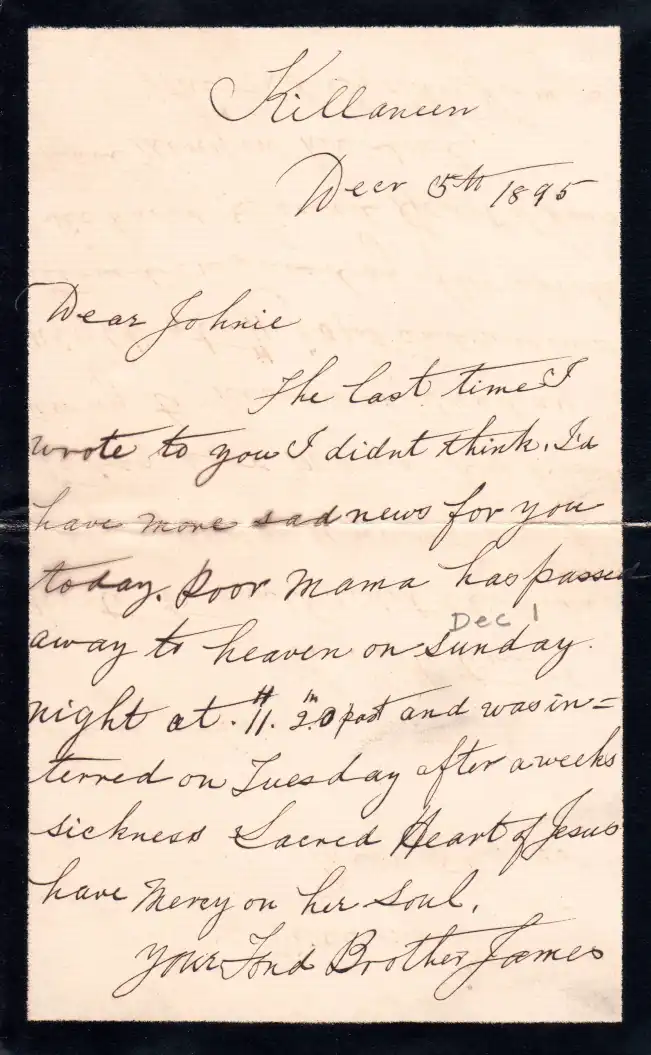 Killaneen
Decr 5th 1895
Dear Johnie
The last time I
wrote to you I didnt think I'd
have more sad news for you
today. Poor Mama has passed
away to heaven on Sunday
Dec 1
night at 11. 20 past and was in=
terred on Tuesday after a weeks
sickness Sacred Heart of Jesus
have Mercy on her Soul.
Your Fond Brother James